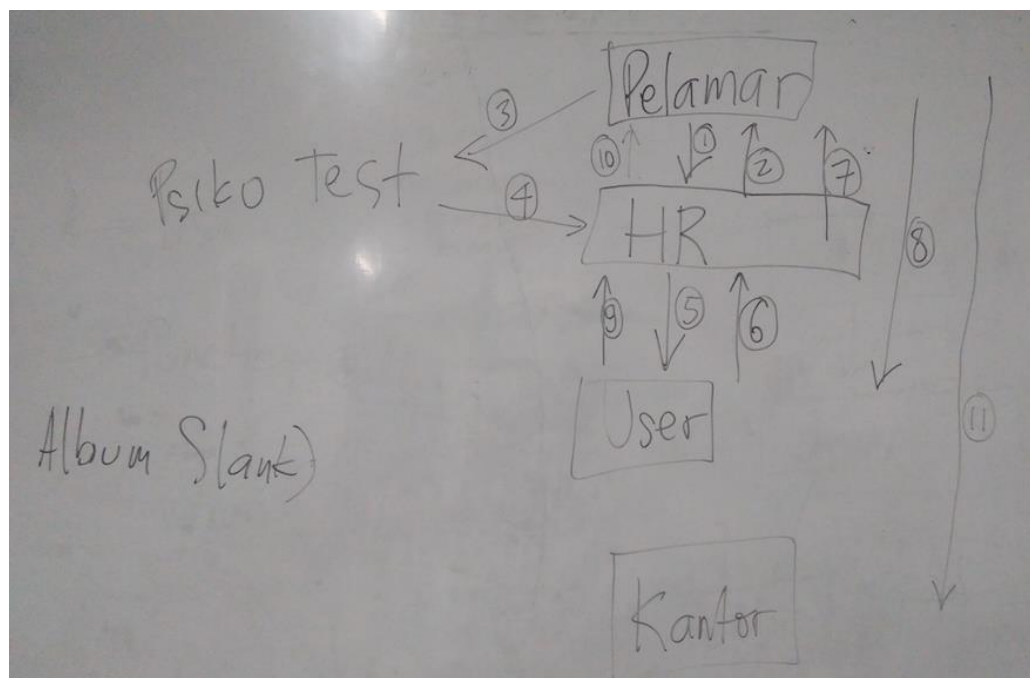 Pelamar
③
⑩ ① ② ⑦
Psiko Test
④
HR
⑧
⑨ ⑤ ⑥
User
⑪
Album Slank)
Kantor